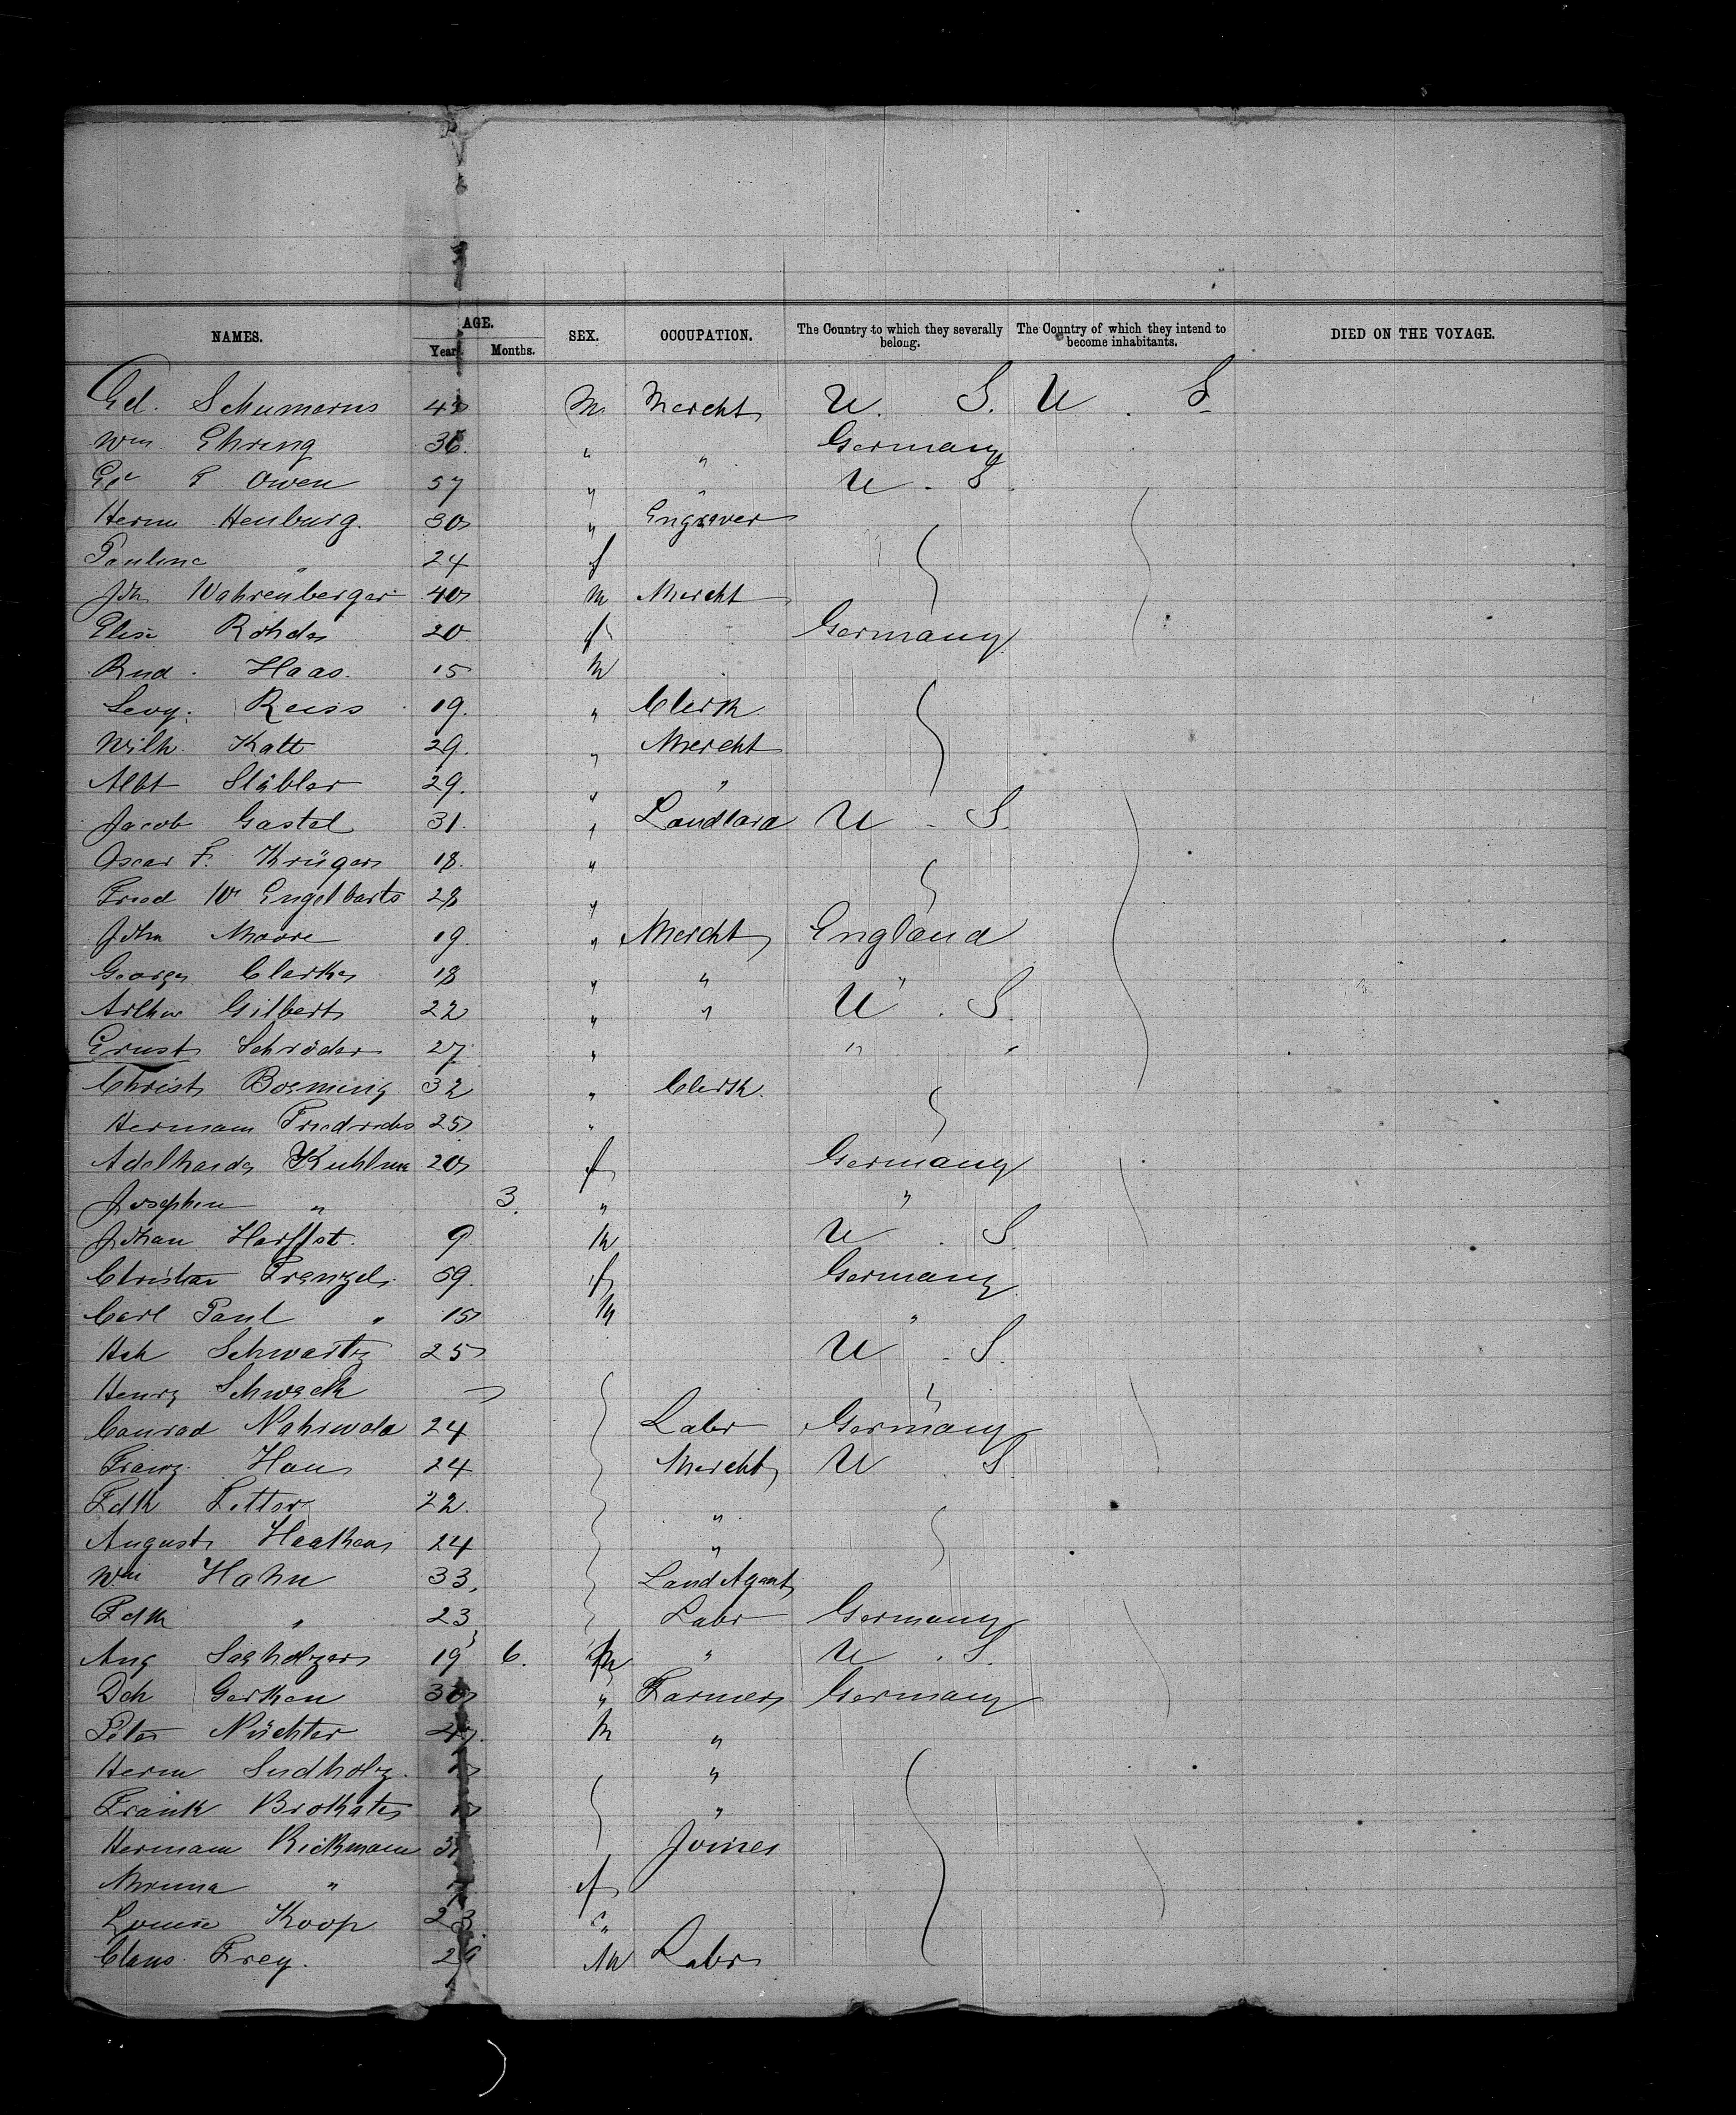 NAMES. AGE. SEX. OCCUPATION. The Country to which they severally belong. The Country of which they intend to become inhabitants. DIED ON THE VOYAGE.
Years. Months.
Ed. Schumarus M Mercht U. S. U. S.
Wm Ehring 36. " " Germany
T Owen 57 " " U. S.
Herm Henburg. 30 " Engraver
Pauline " 24 f
Joh Wahrenberger 40 M Mercht
Elise Rohde 20 f Germany
Rud. Haas. 15 M
Levy. Reiss 19. " Clerk
Wilh. Katt 29. " Mercht
Albt Stäbler 29. " "
Jacob Gastel 31. " Landlord U. S.
Oscar F. Krüger 18. "
Fried W Engelbarts 28 "
John Moore 19. " Mercht England
George Clarke 18 " " "
Arthur Gilbert 22 " " U. S.
Ernst Schröder 27. " " "
Christ Boeming 32 " Clerk.
Hermann Friedrichs 25 "
Adelheid Kuhlme 20 f Germany
Josephine " 3. " "
Johan Harffst. 9 M U. S.
Christian Frenzel. 59. f Germany
Carl Paul " 15 M "
Hch Schwartz 25 U. S.
Henry Schwack
Conrad Nahrwold 24 Labr Germany
Franz Hau 24 Mercht U. S.
Fdk Letter 22. "
August Haaken 24 "
Wm Hahn 33, Land Agent
Fdk " 23, Labr Germany
Aug Seeholzer 19 6. M " U. S.
Dch Gerken 30 " Farmer Germany
Peter Nüchter 47. M "
Herm Sudholz. "
Frank Brokate "
Hermann Rickmann Joiner
" f
Louise Koop 23 "
Claus. Frey. M Labr